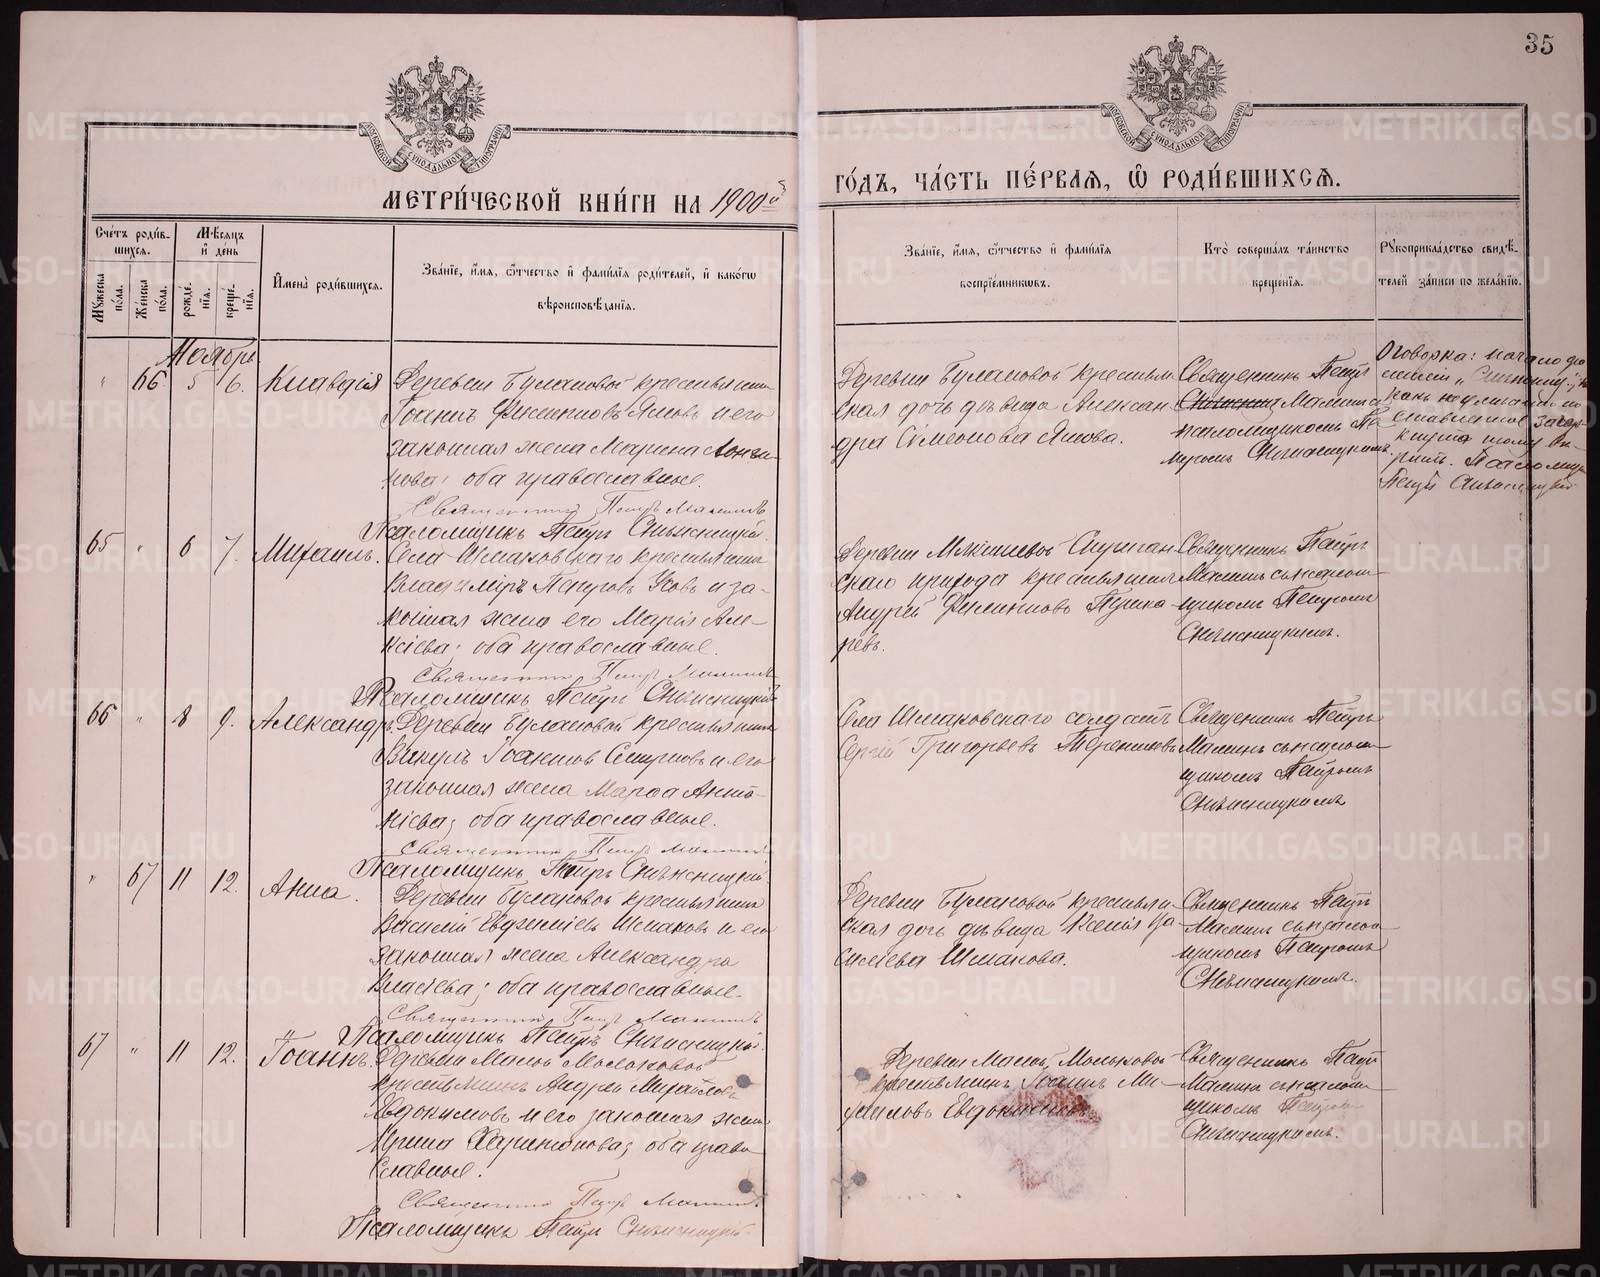 35
МОСКОВСКОЙ СѴНОДАЛЬНОЙ ТИПОГРАФІИ
МОСКОВСКОЙ СѴНОДАЛЬНОЙ ТИПОГРАФІИ
МЕТРИ́ЧЕСКОЙ КНИ́ГИ НА 1900й
ГО́ДЪ, ЧА́СТЬ ПЕ́РВАЯ, Ѿ РОДИ́ВШИХСЯ.
Сче́тъ роди́в-
шихся.
Мѣ́сяцъ
и҆ де́нь
Мꙋ́жеска по́ла.
Же́нска по́ла.
рожде́-нїя.
креще́-нїя.
И҆мена̀ роди́вшихся.
Зва́нїе, и҆́мя, ѻ҆́тчество и҆ фами́лїя роди́телей, и҆ како́гѡ
вѣроисповѣ́данїя.
Зва́нїе, и҆́мя, ѻ҆́тчество и҆ фами́лїя
воспрїе́мникѡвъ.
Кто̀ соверша́лъ та́инство
креще́нїя.
Рꙋкоприкла́дство свидѣ́-
телей за́писи по жела́нїю.
Ноябрь
" 66 5 6. Клавдія
Деревни Булановой крестьянинъ
Іоаннъ Филипповъ Яшовъ и его
законная жена Марина Логи-
нова; оба православные.
Священникъ Петръ Маминъ
Псаломщикъ Петръ Снѣжницкій.
Деревни Булановой крестьян-
ская дочь дѣвица Алексан-
дра Симеонова Яшова.
Священникъ Петръ
Маминъ съ
псаломщикомъ Пе-
тромъ Снѣжницкимъ.
Оговорка: начало фа-
миліи
Псаломщикъ
Петръ Снѣжницкій
65 " 6 7. Михаилъ.
Села Шмаковскаго крестьянинъ
Владиміръ Петровъ Усовъ и за-
конная жена его Марія Але-
ксіева; оба православные.
Священникъ Петръ Маминъ
Псаломщикъ Петръ Снѣжницкій
прихода крестьянинъ
Андрей Филипповъ Пушка-
ревъ.
Священникъ Петръ
Маминъ съ псалом-
щикомъ Петромъ
Снѣжницкимъ.
66 " 8 9. Александръ.
Деревни Булановой крестьянинъ
Викулъ Іоанновъ Смирновъ и его
законная жена Марѳа Анто-
ніева; оба православные.
Священникъ Петръ Маминъ
Псаломщикъ Петръ Снѣжницкій
Села Шмаковскаго солдатъ
Сергій Григорьевъ Терентьевъ
Священникъ Петръ
Маминъ съ псалом-
щикомъ Петромъ
Снѣжницкимъ
" 67 11 12. Анна.
Деревни Булановой крестьянинъ
Василій Евфиміевъ Шмаковъ и его
законная жена Александра
Власіева; оба православные.
Священникъ Петръ Маминъ
Псаломщикъ Петръ Снѣжницкій.
Деревни Булановой крестьян-
ская дочь дѣвица Ксенія Ва-
силіева Шмакова.
Священникъ Петръ
Маминъ съ псалом-
щикомъ Петромъ
Снѣжницкимъ.
67 " 11 12. Іоаннъ.
Деревни Малой Мольковой
крестьянинъ Андрей Михайловъ
Евдокимовъ и его законная жена
Ирина Харитонова; оба право-
славные.
Священникъ Петръ Маминъ
Псаломщикъ Петръ Снѣжницкій.
Деревни Малой Мольковой
крестьянинъ Іоаннъ Ми-
хаиловъ Евдокимовъ
Священникъ Петръ
Маминъ съ псалом-
щикомъ Петромъ
Снѣжницкимъ.
METRIKI.GASO-URAL.RU